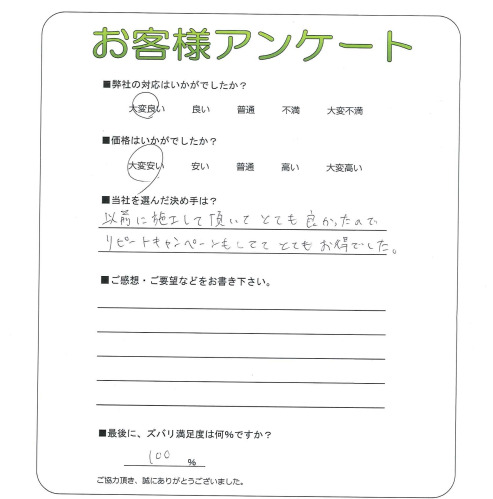 お客様アンケート
■弊社の対応はいかがでしたか？
大変良い 良い 普通 不満 大変不満
■価格はいかがでしたか？
大変安い 安い 普通 高い 大変高い
■当社を選んだ決め手は？
以前に施工して頂いてとても良かったので
リピートキャンペーンもしててとてもお得でした。
■ご感想・ご要望などをお書き下さい。
■最後に、ズバリ満足度は何％ですか？
100 ％
ご協力頂き、誠にありがとうございました。